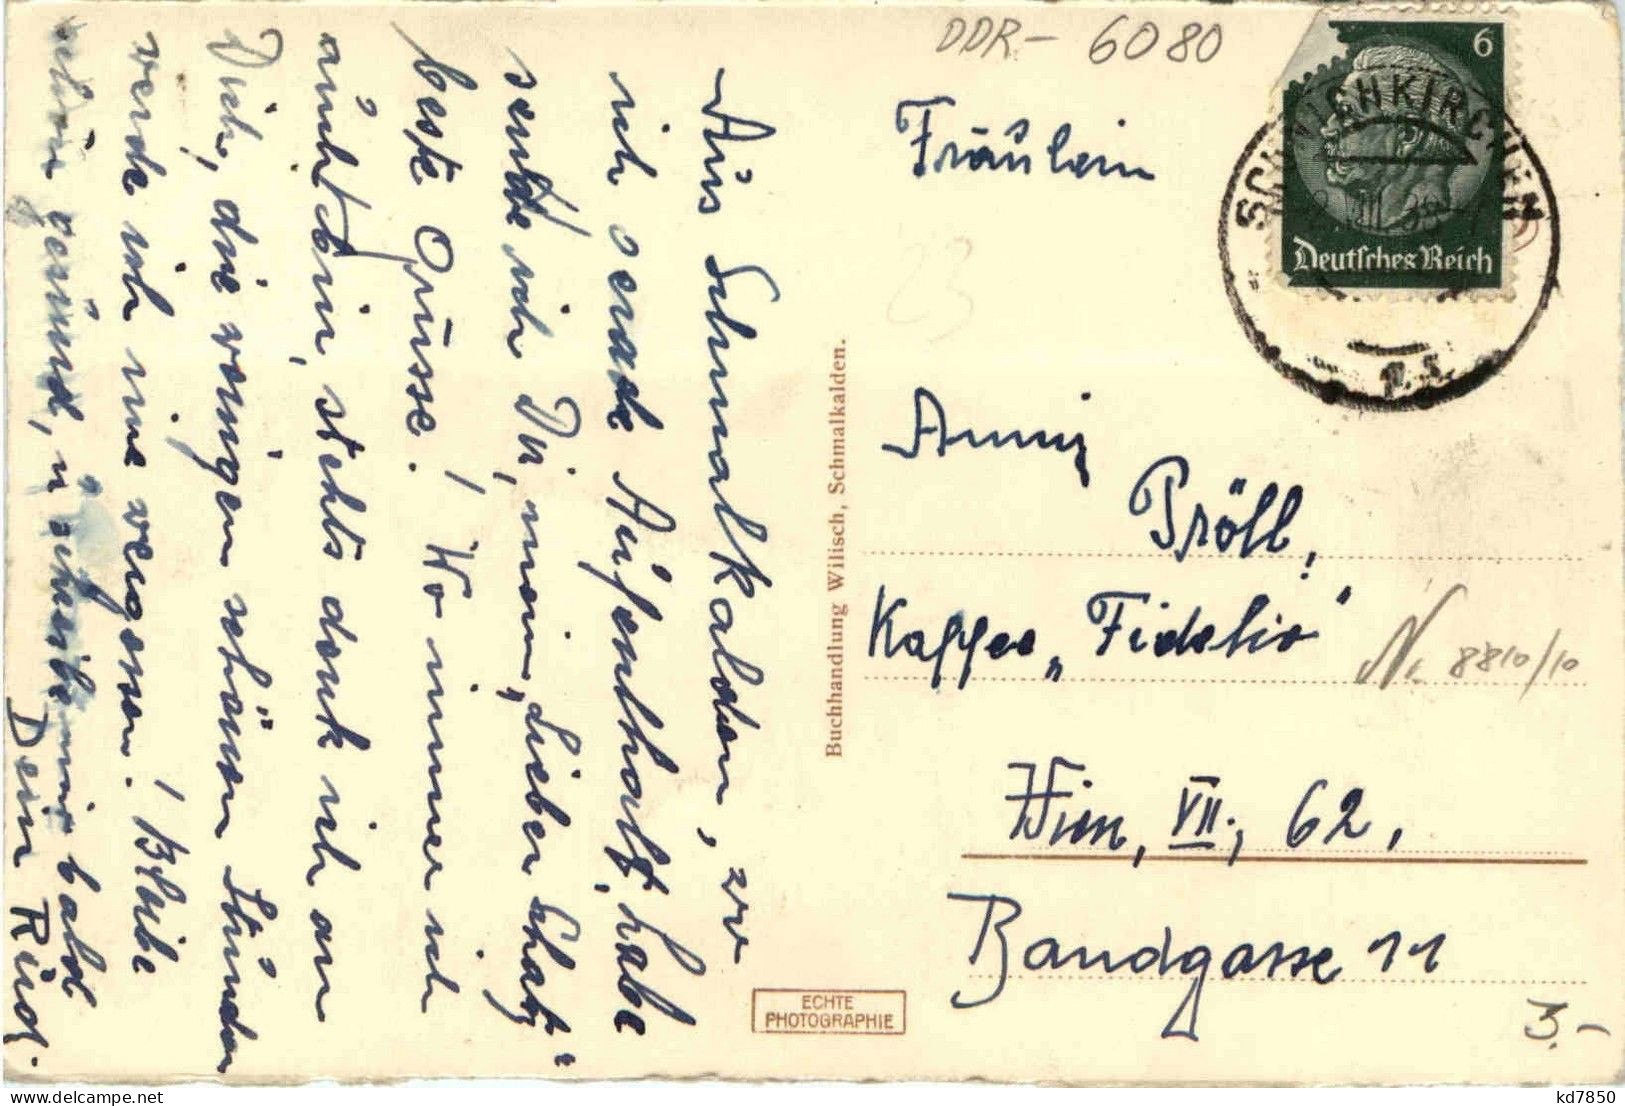 DDR- 6080
6
Deutsches Reich
Fräulein
Anny
Pröll,
Kaffee „Fidelio"
Nr 8810/10
Wien, VII., 62.
Bandgasse 11
3.-
23
Buchhandlung Wilisch, Schmalkalden.
ECHTE
PHOTOGRAPHIE
Aus Schmalkalden, wo
ich gerade Aufenthalt habe
sende ich Dir, mein „Lieber Schatz"
beste Grüsse. Wo immer ich
auch bin, stehts denk ich an
Dich, die wenigen schönen Stunden
werde ich nie vergessen. Bleibe
schön gesund, u schreibe mir bald
Dein Rudi.
kd7850